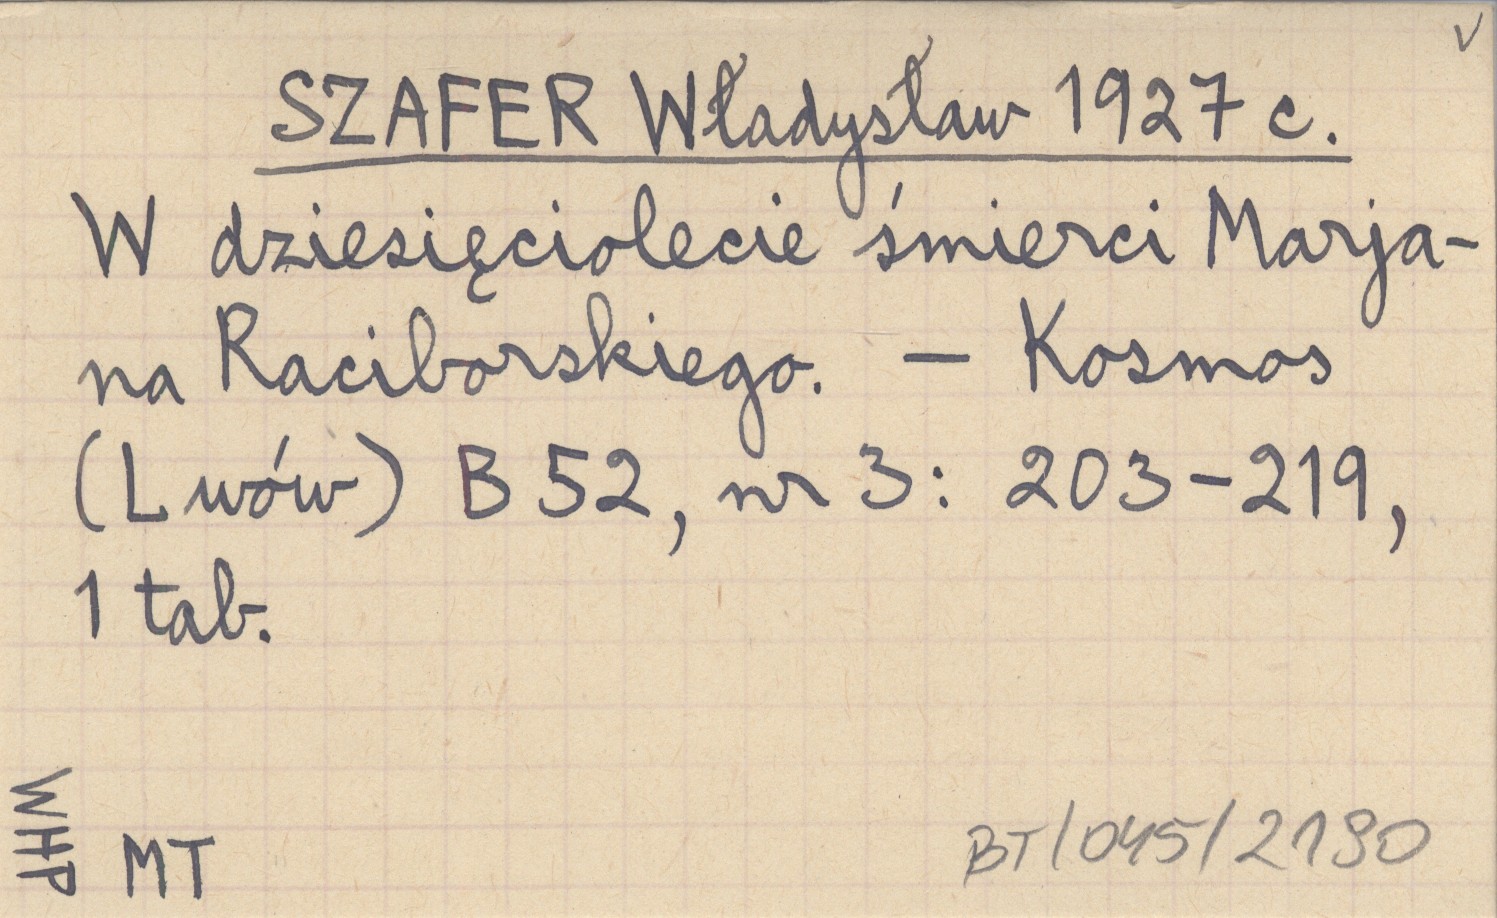 v
SZAFER Władysław 1927 c.
W dziesięciolecie śmierci Marja-
na Raciborskiego. — Kosmos
(Lwów) B 52, nr 3: 203-219,
1 tab.
WHP
MT
BT/045/2190